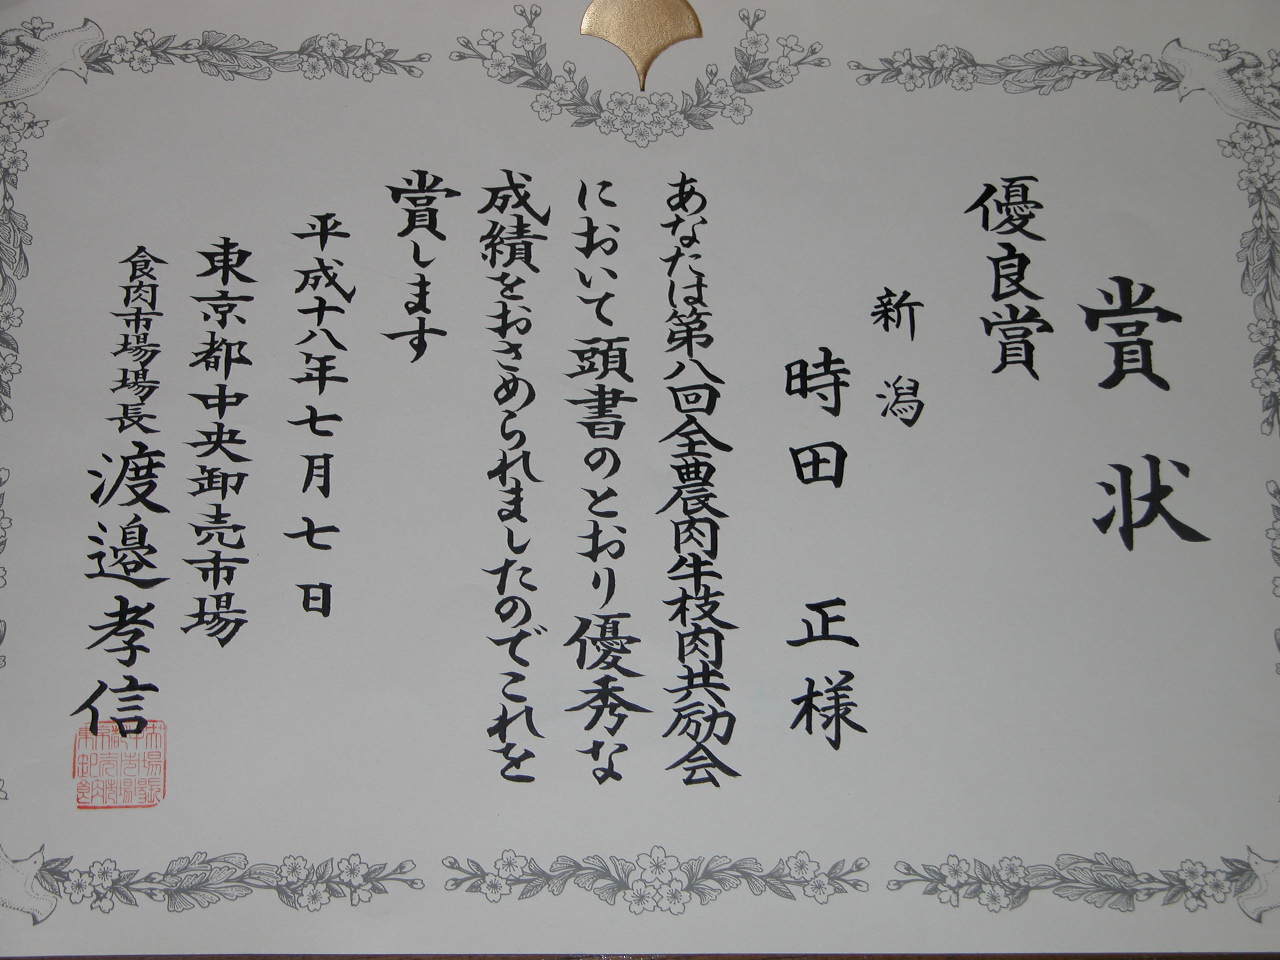 賞状
優良賞
新潟
時田 正様
あなたは第八回全農肉牛枝肉共励会
において頭書のとおり優秀な
成績をおさめられましたのでこれを
賞します
平成十八年七月七日
東京都中央卸売市場
食肉市場場長 渡邉孝信